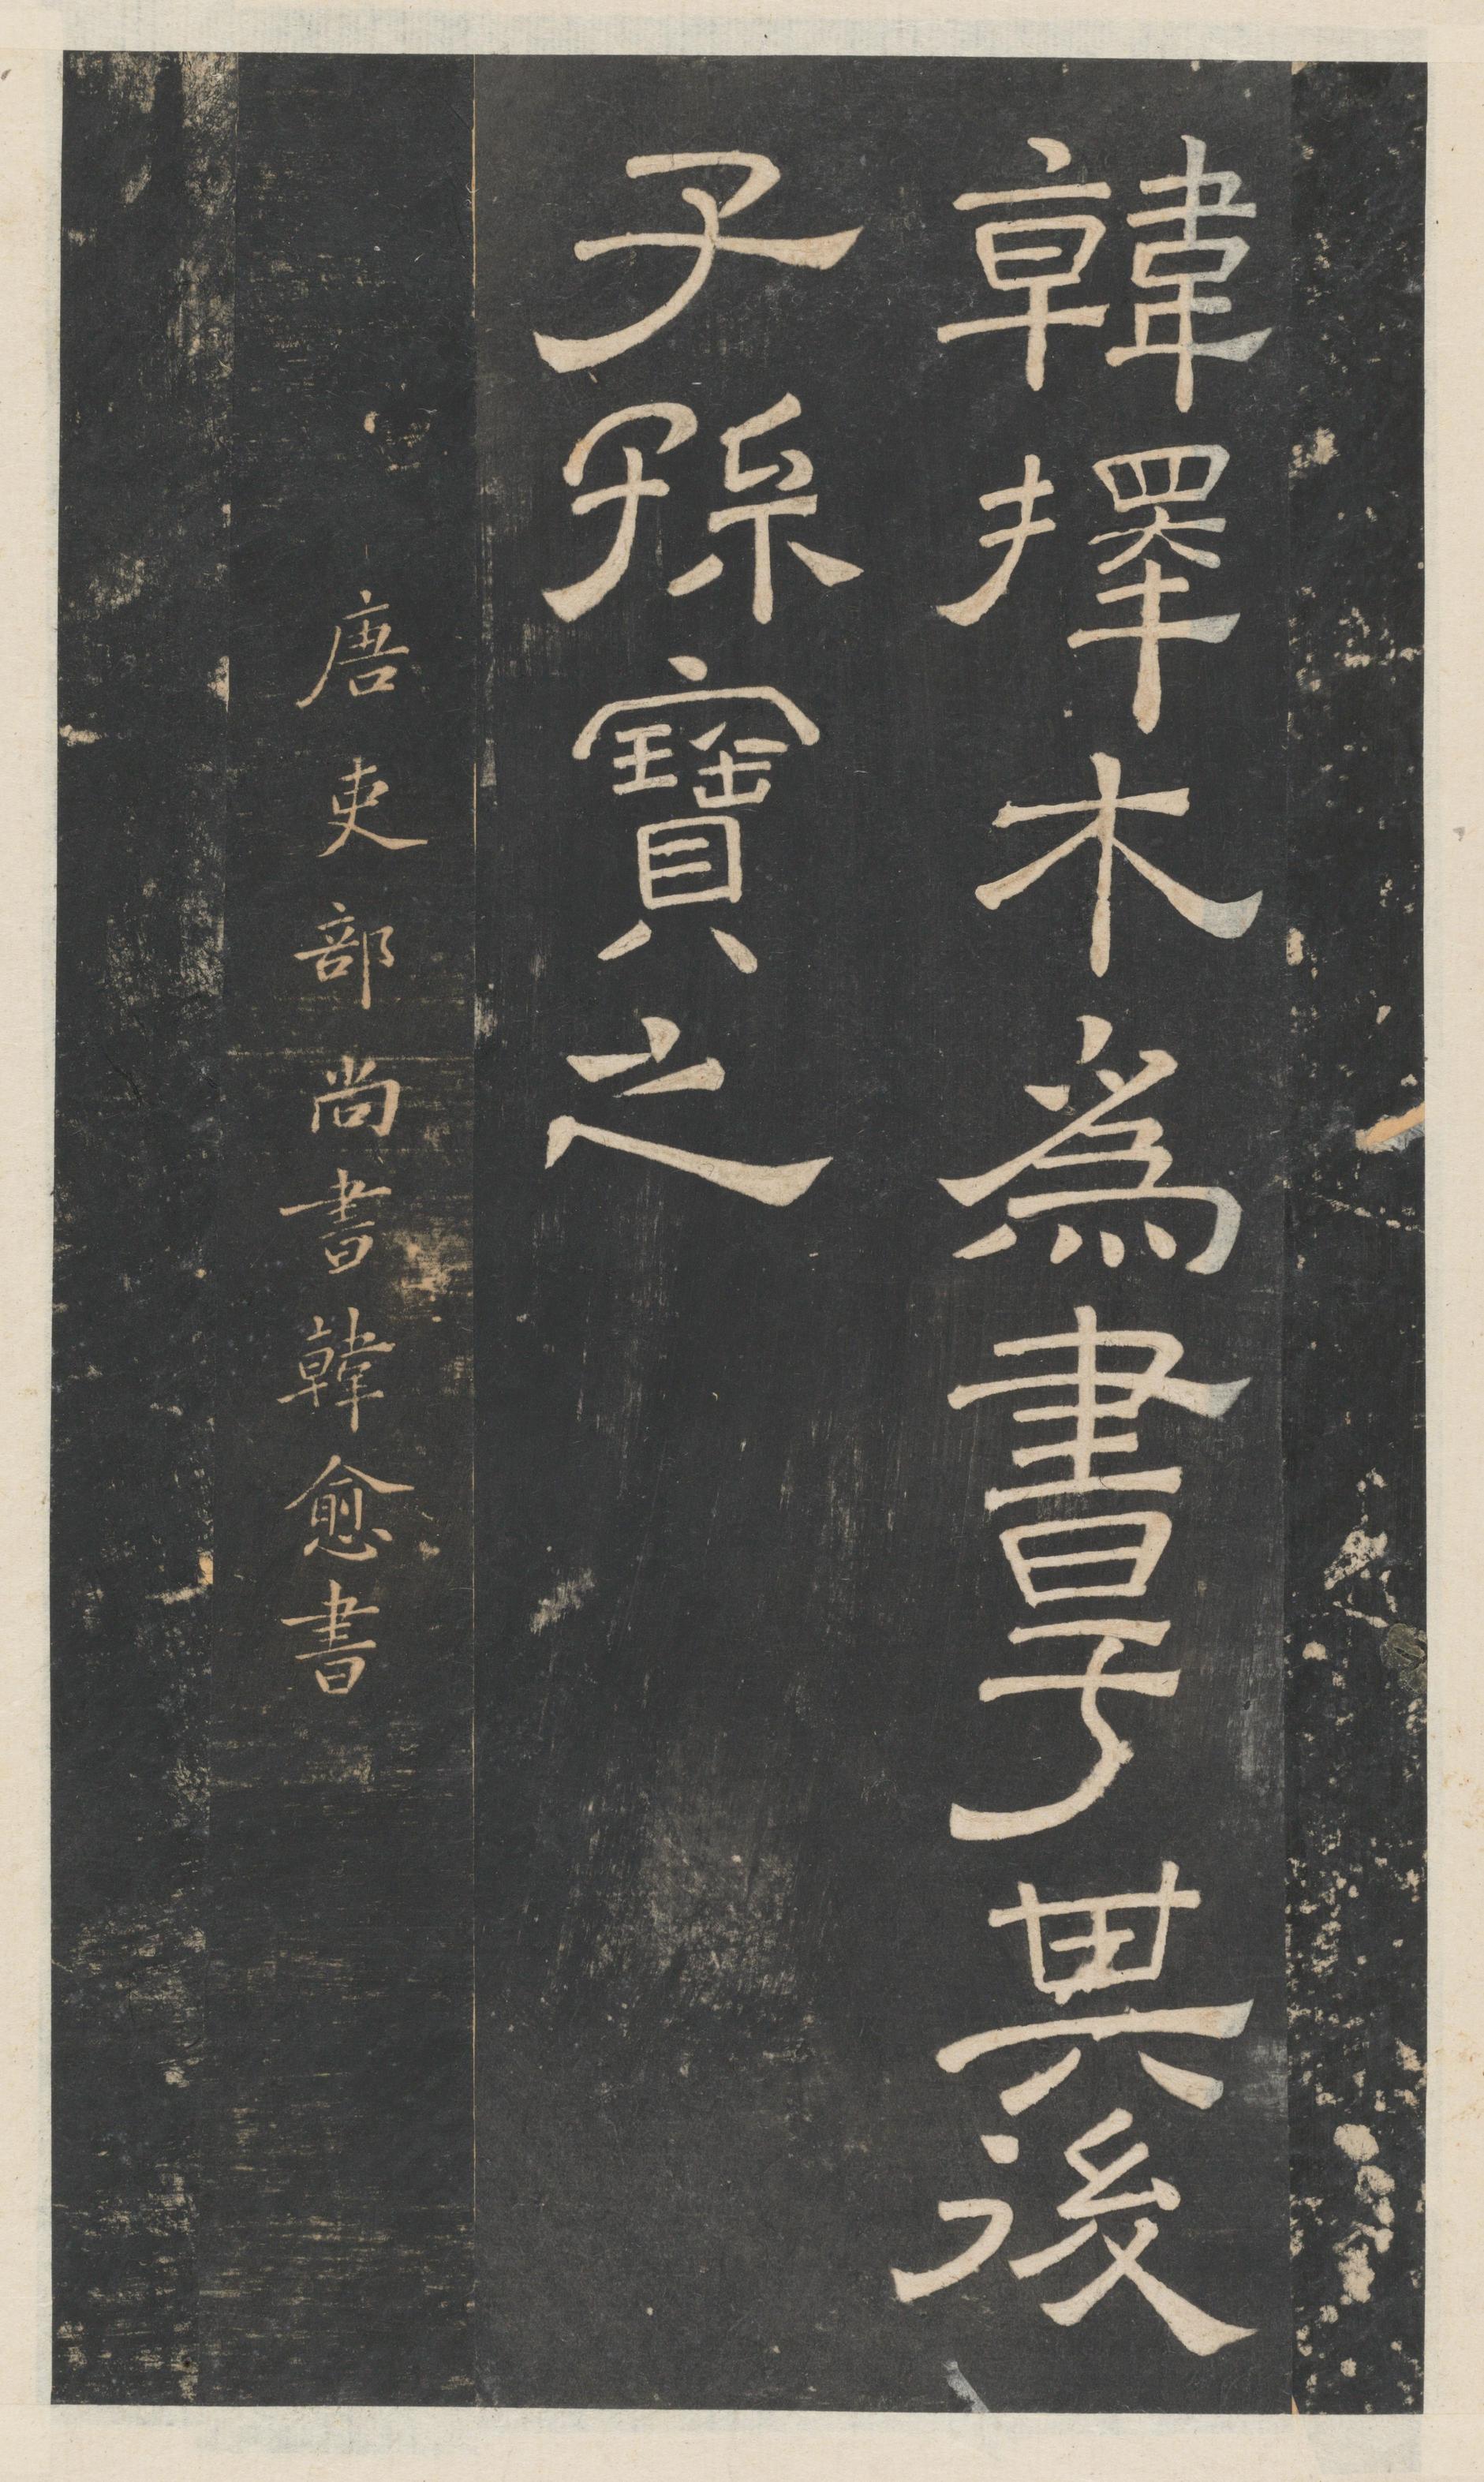 韓擇木爲書于其後
子孫寶之
唐吏部尚書韓愈書